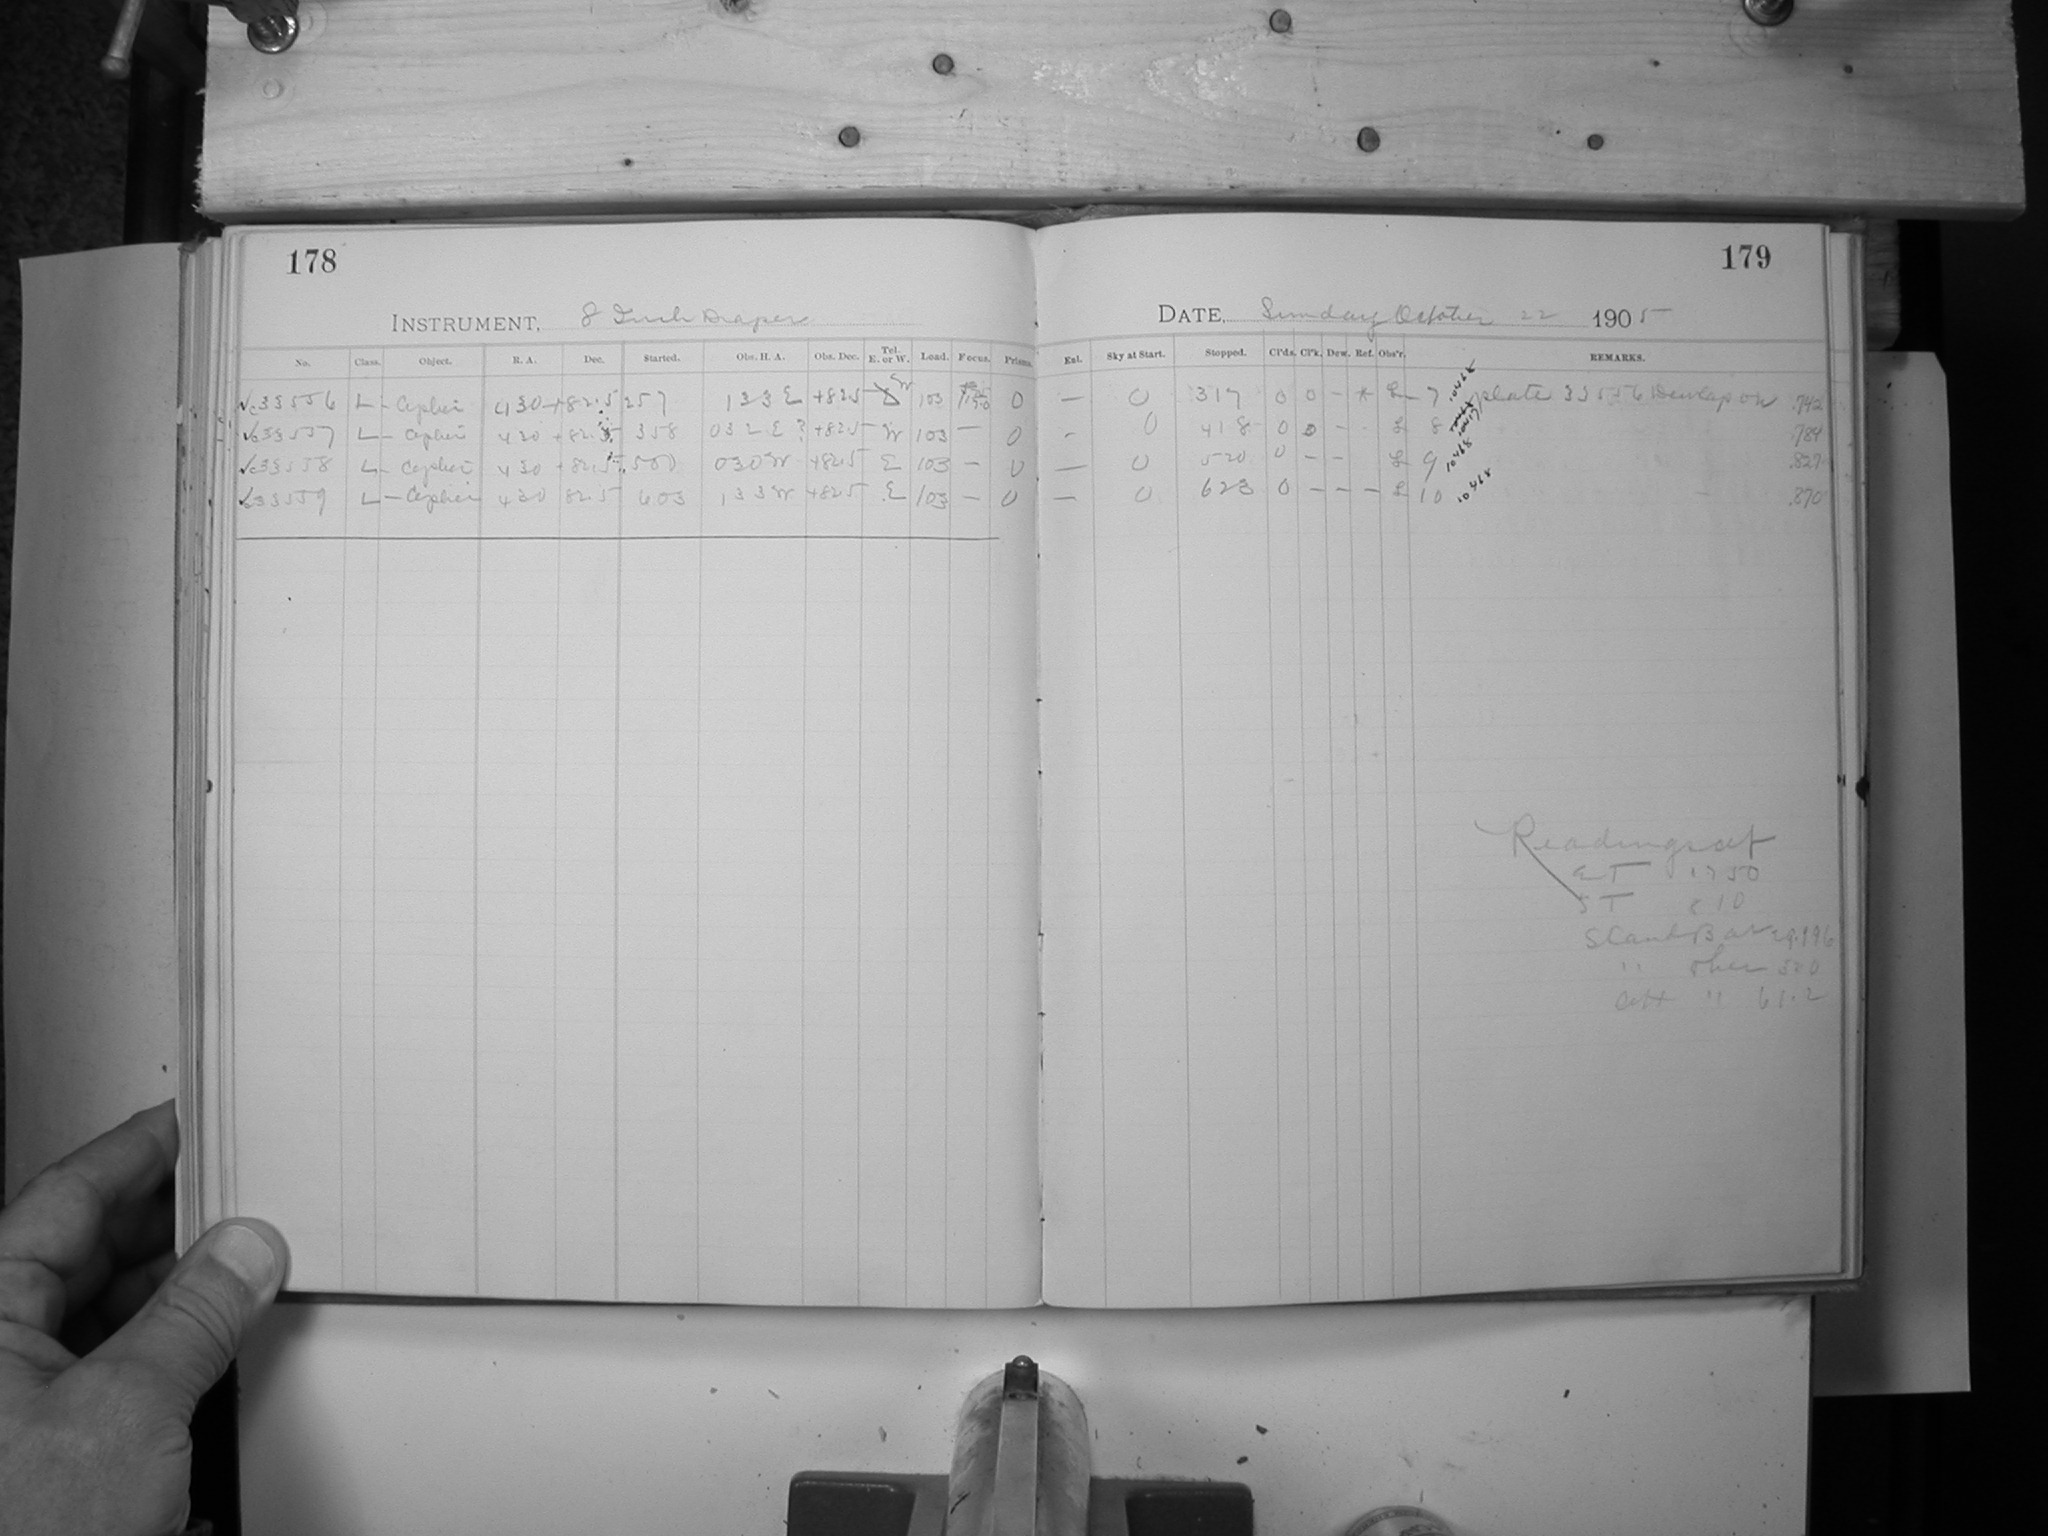 178
179
INSTRUMENT, 8 Inch Draper
DATE, Sunday October 22 1905
No. Class. Object. R. A. Dec. Started. Obs. H. A. Obs. Dec. Tel. E. or W. Load. Focus. Prisms. Ent. Sky at Start. Stopped. Cl'ds. Cl'k. Dew. Ref. Obs'r. REMARKS.
33556 L Cephei 430 +82.5 257 133 E +825 W 103 0 — 0 317 0 0 - * L 7 10468 plate 33556 .742
33557 L Cephei 430 +82.5 358 032 E ? +825 W 103 — 0 - 0 418 0 0 - L 8 .784
33558 L Cephei 430 +82.5 500 030 W +825 E 103 — 0 — 0 520 0 - - L 9 10468 .827
33559 L Cephei 430 82.5 603 133 W +825 E 103 — 0 — 0 623 0 - - - L 10 10468 .870
Readings at
ST 10
Stand Bar
" ther 500
Att " 61.2